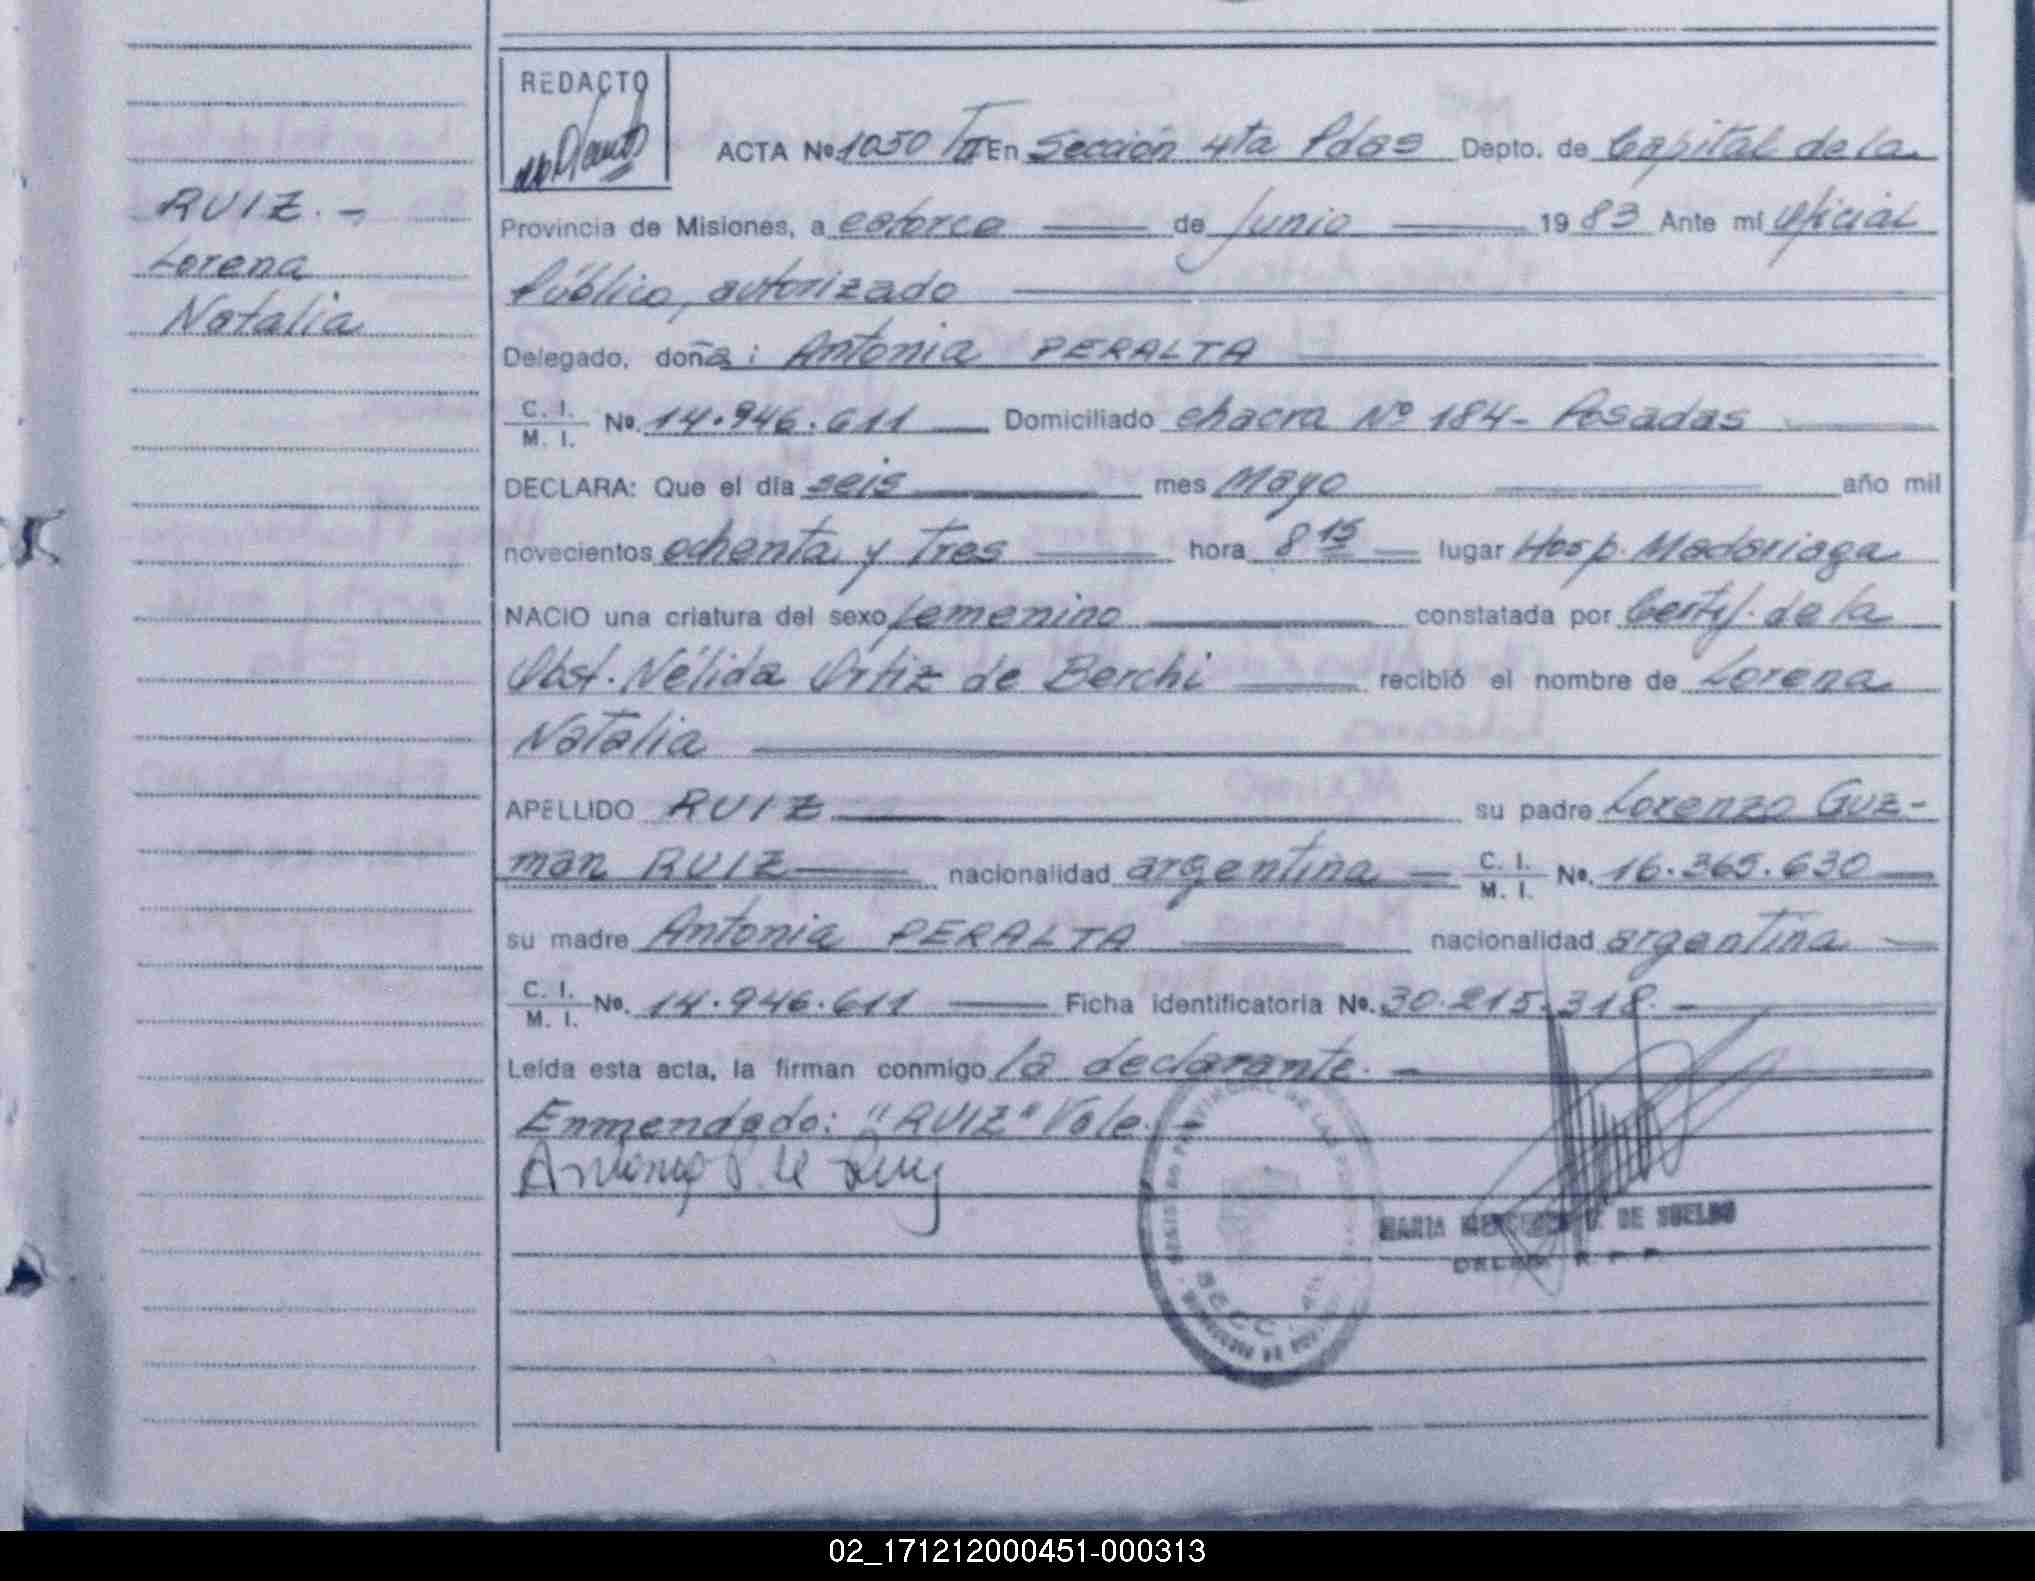 REDACTO
ACTA Nº 1050 / II En Sección 4ta Pdas Depto. de Capital de la
RUIZ. -
Provincia de Misiones, a catorce de Junio 1983 Ante mí Oficial
Lorena
Público, autorizado
Natalia
Delegado, doña: Antonia PERALTA
C. I. / M. I. Nº. 14.946.611 Domiciliado chacra Nº 184 - Posadas
DECLARA: Que el día seis mes Mayo año mil
novecientos ochenta y tres hora 8 15 lugar Hosp. Madariaga
NACIO una criatura del sexo femenino constatada por Certif. de la
Obst. Nélida Ortiz de Berchi recibió el nombre de Lorena
Natalia
APELLIDO RUIZ su padre Lorenzo Guz-
man RUIZ nacionalidad argentina C. I. / M. I. Nº. 16.365.630
su madre Antonia PERALTA nacionalidad argentina
C. I. / M. I. Nº. 14.946.611 Ficha identificatoria Nº. 30.215.318.
Leída esta acta, la firman conmigo la declarante.
Enmendado: "RUIZ" Vale. -
Antonia P. de Ruiz
MARIA MERCEDES DE SUELDO
02_171212000451-000313